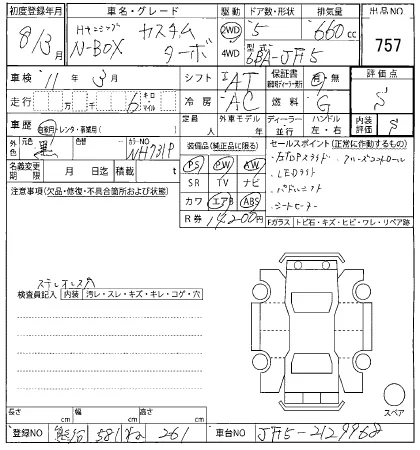 初度登録年月 車名・グレード 駆動 ドア数・形状 排気量 出品NO
8/3月 N-BOX カスタム ターボ 2WD 5 660cc 757
4WD 型式 6BA-JF5
車検 11年 3月 シフト IAT 保証書 有 無 評価点
走行 万 千 6 キロ マイル 冷房 AC 燃料 G S
車歴 自家用・レンタ・事業用( ) 定員 人 外車モデル 年 ディーラー 並行 ハンドル 左・右 内装評価 S
外色 元色 黒 色替 カラーNO NH731P 装備品(純正品に限る) セールスポイント(正常に作動するもの)
PS PW AW クルーズコントロール
名義変更期限 月 日迄 積載 t SR TV ナビ LEDライト
注意事項(欠品・修復・不具合箇所および状態) カワ エアB ABS パドルシフト
R券 14200円 シートヒーター
Fガラス トビ石・キズ・ヒビ・ワレ・リペア跡
ステレオレス穴
検査員記入 内装 汚レ・スレ・キズ・キレ・コゲ・穴
スペア
長さ cm 幅 cm 高さ cm
登録NO 581 261 車台NO JF5-2129968